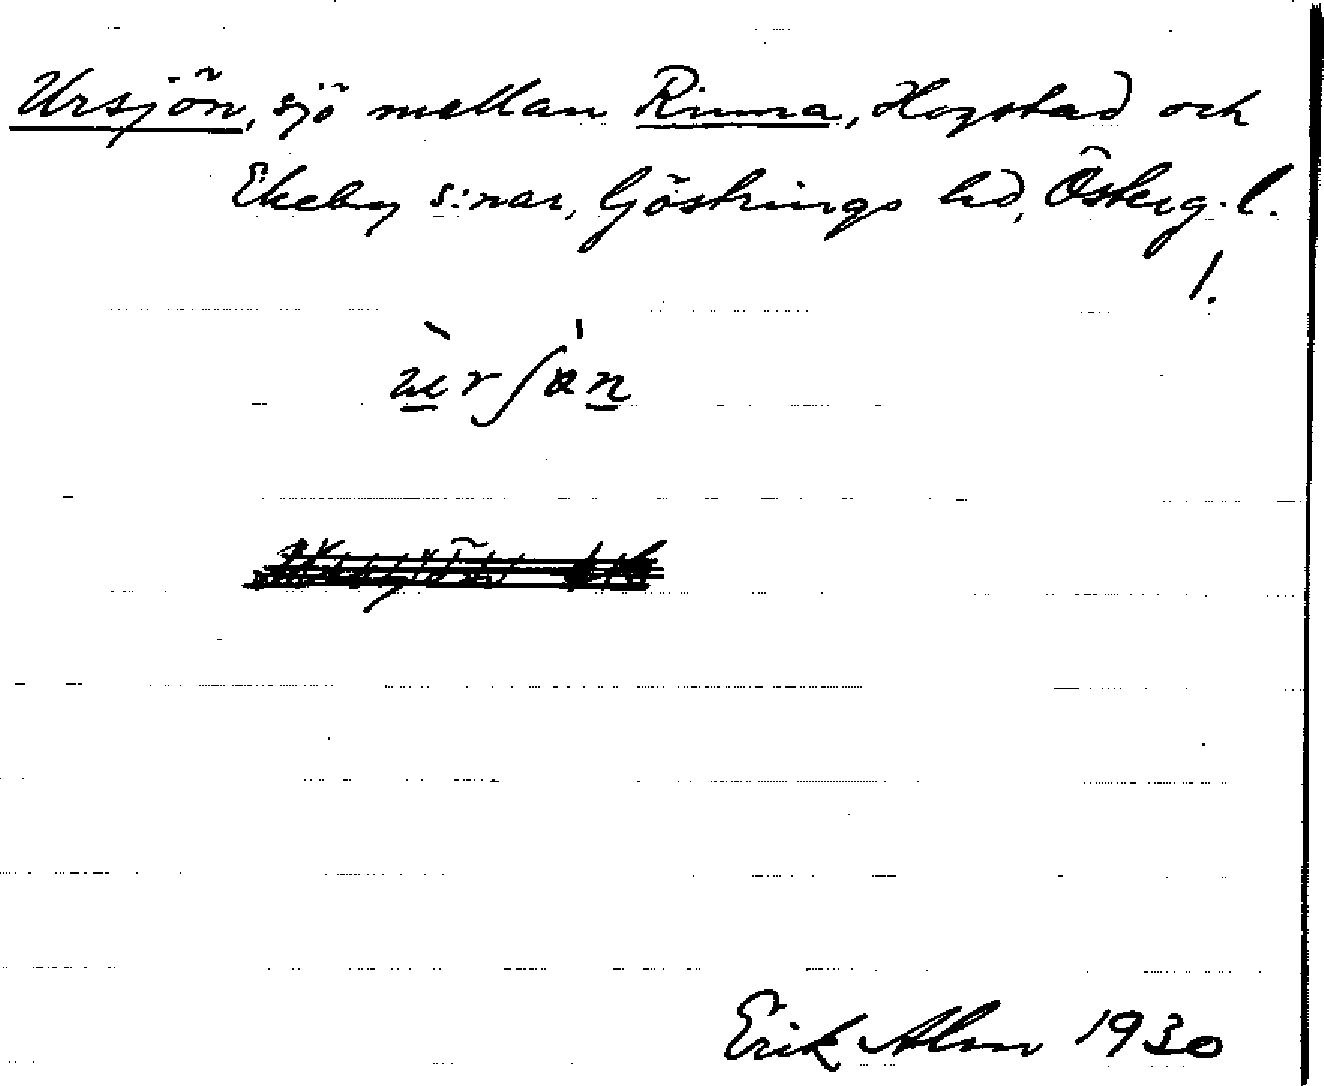 Ursjön, sjö mellan Rinna, Hogstad och
Ekeby s:nar, Göstrings hd, Österg. l.
1.
Erik Alm 1930